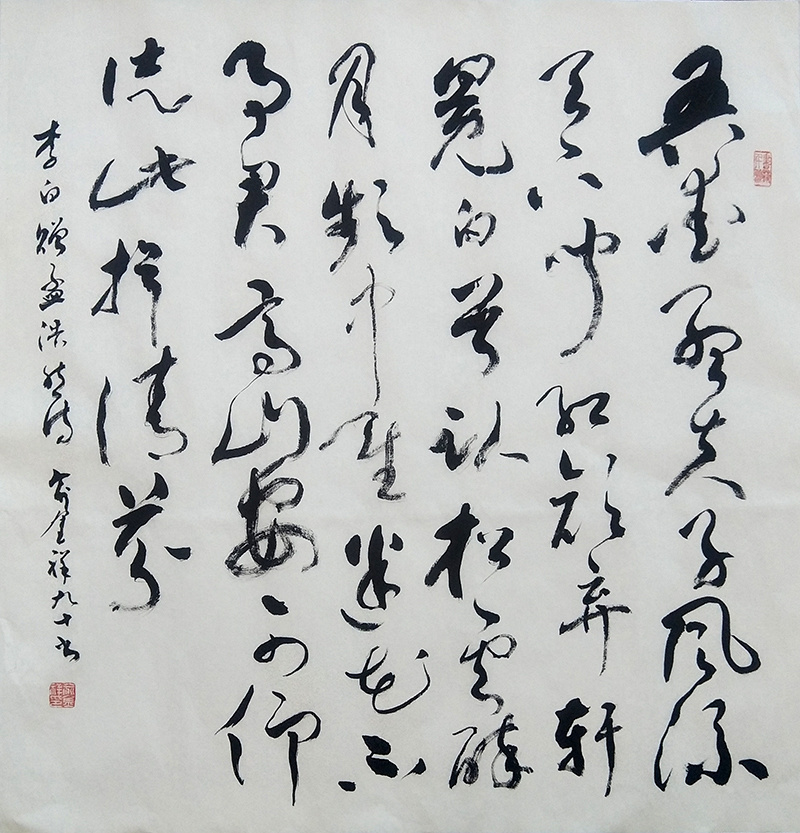 吾爱孟夫子风流
天下闻红颜弃轩
冕白首卧松云醉
月频中圣迷花不
事君高山安可仰
徒此揖清芬
李白赠孟浩然诗 祥九十书